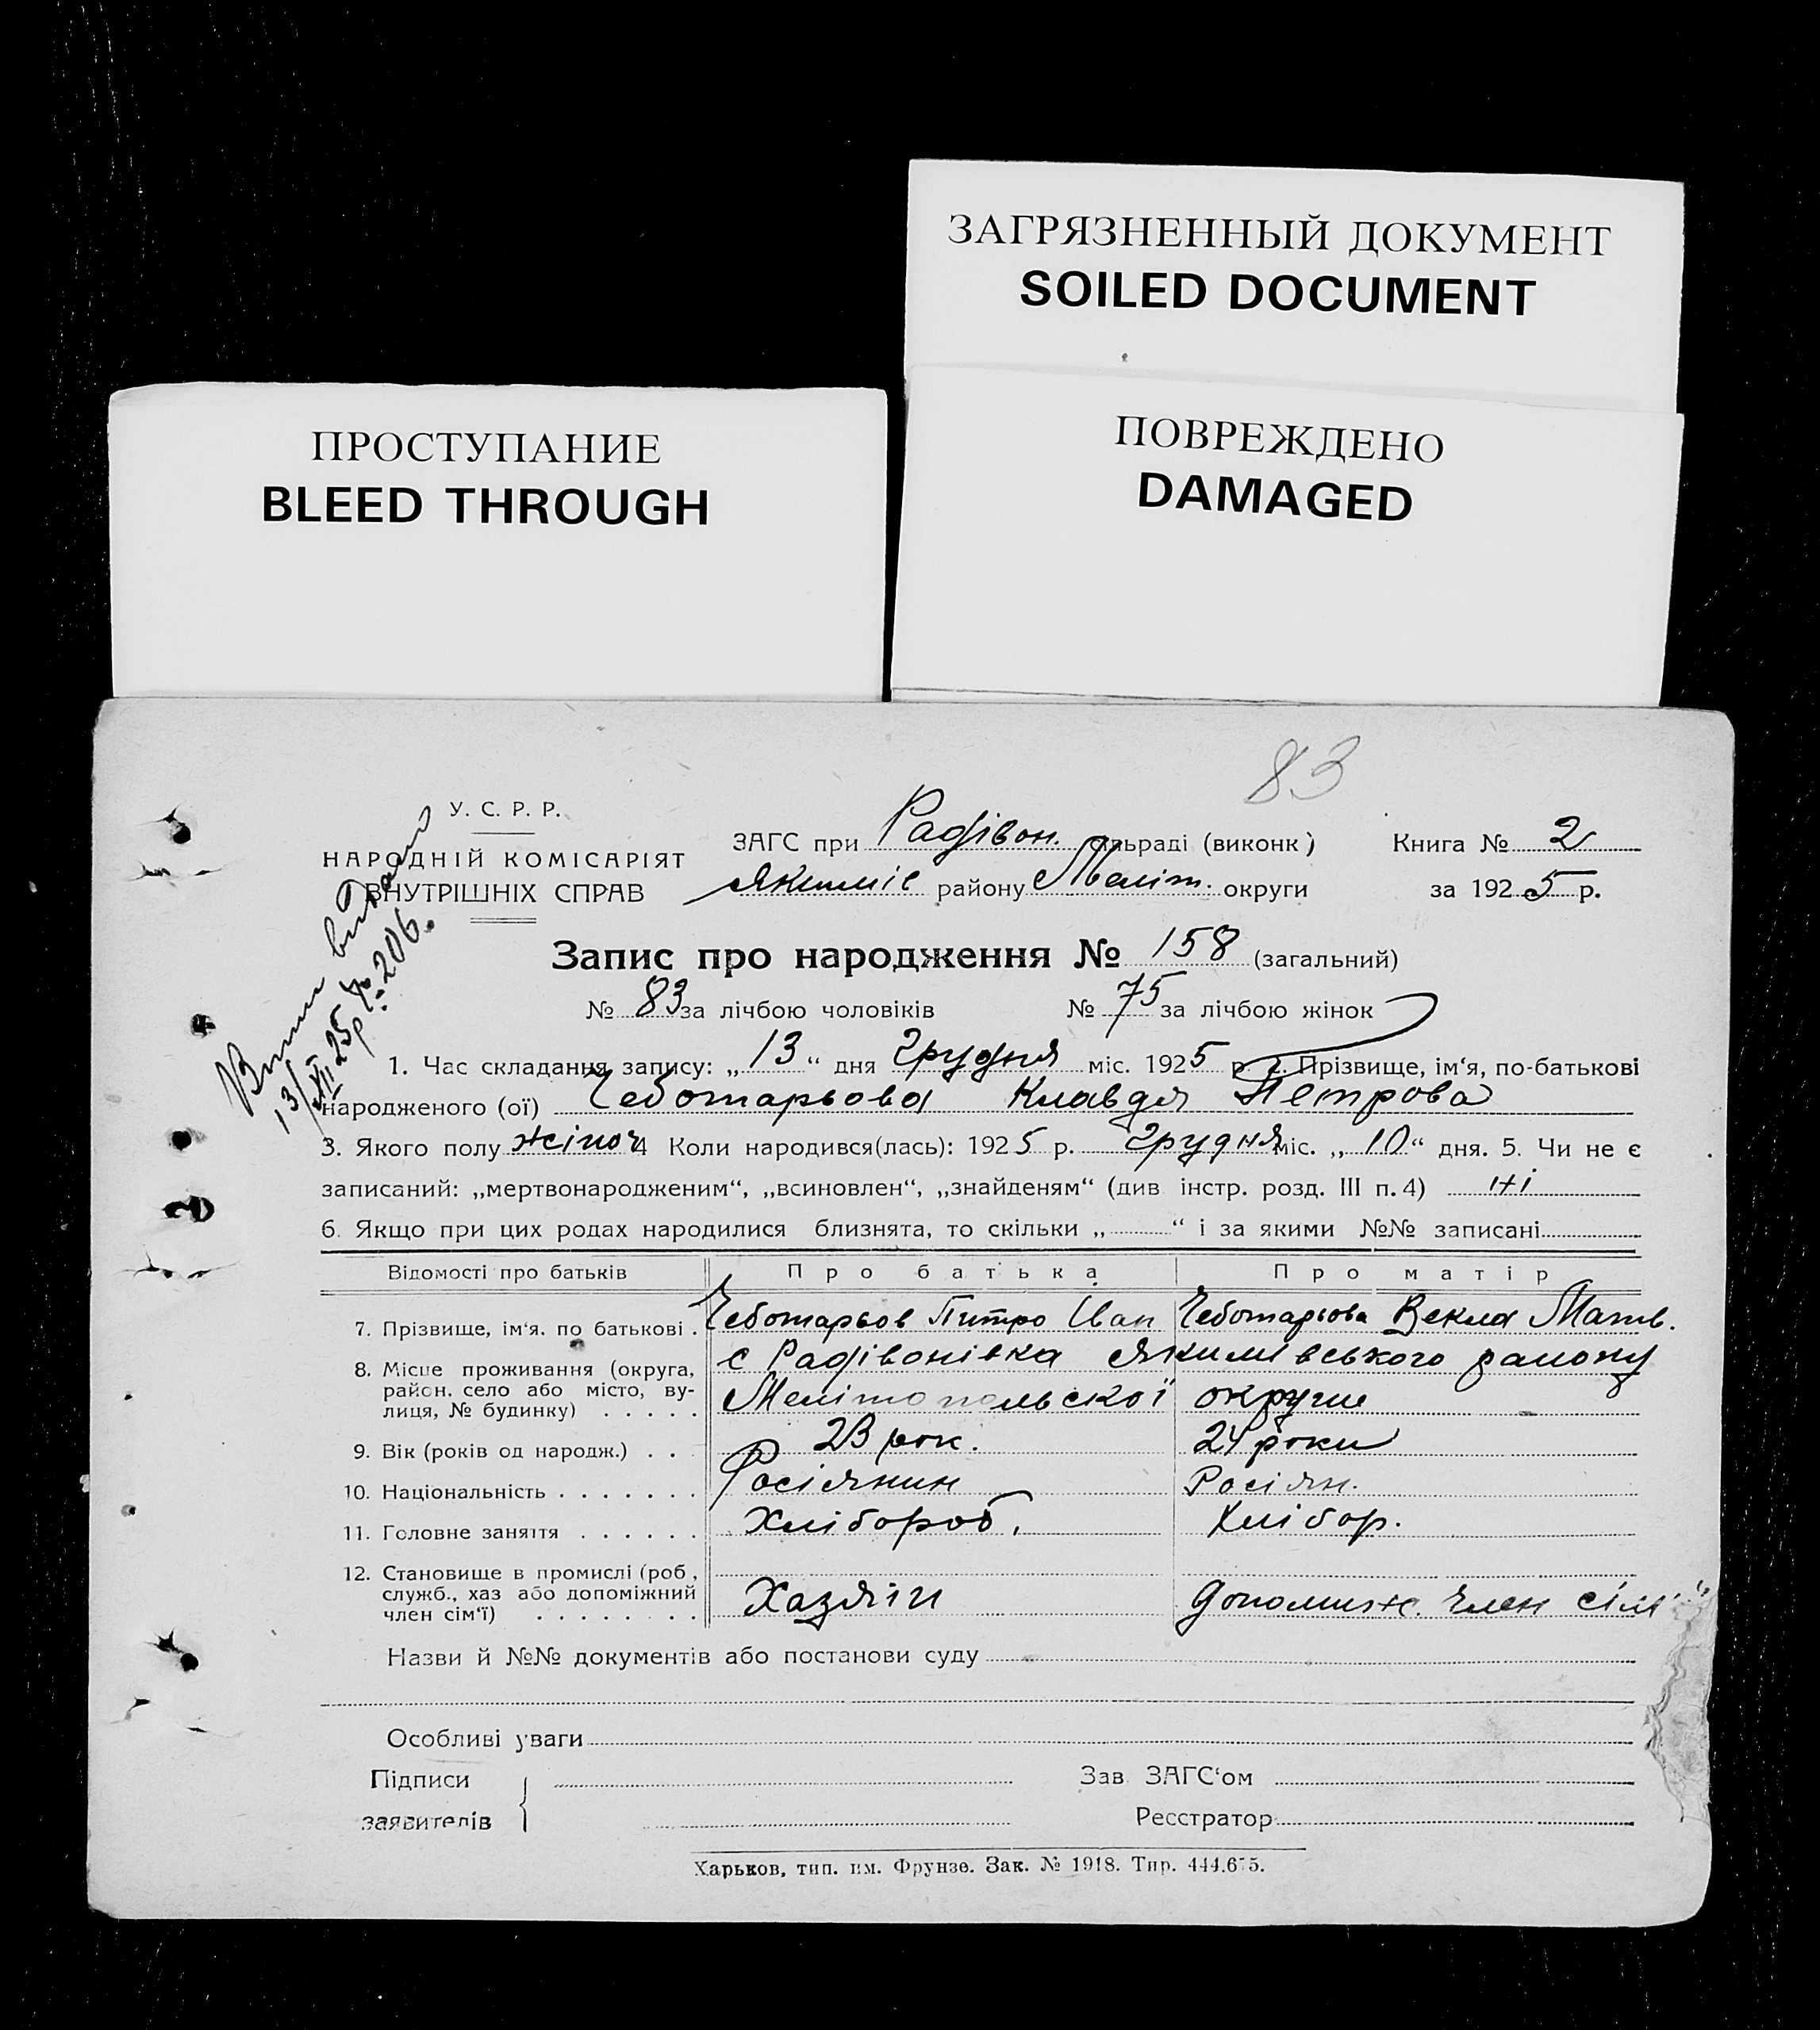 ЗАГРЯЗНЕННЫЙ ДОКУМЕНТ
SOILED DOCUMENT
ПРОСТУПАНИЕ
BLEED THROUGH
ПОВРЕЖДЕНО
DAMAGED
83
У. С. Р. Р.
НАРОДНІЙ КОМІСАРІЯТ
ВНУТРІШНІХ СПРАВ
ЗАГС при Радівон. сільраді (виконк) Книга № 2
Якиміс району Меліт. округи за 1925 р.
Витяг видано
13/XII 25 р. № 206.
Запис про народження № 158 (загальний)
№ 83 за лічбою чоловіків № 75 за лічбою жінок
1. Час складання запису: „13“ дня Грудня міс. 1925 р. 2. Прізвище, ім‘я, по-батькові
народженого (ої) Чеботарьова Клавдя Петрова
3. Якого полу жіноч 4 Коли народився(лась): 1925 р. Грудня міс. „10“ дня. 5. Чи не є
записаний: „мертвонародженим“, „всиновлен“, „знайденям“ (див. інстр. розд. III п. 4) ні
6. Якщо при цих родах народилися близнята, то скільки „ “ і за якими №№ записані
Відомості про батьків Про батька Про матір
7. Прізвище, ім‘я. по батькові . Чеботарьов Питро Іван Чеботарьова Векла Матв.
8. Місце проживання (округа, с Радівонівка Якимівського району
район, село або місто, ву-
лиця, № будинку) . . . . . Мелітопольскої округи
9. Вік (років од народж.) . . 23 рок. 24 роки
10. Національність . . . . . . . Росіянин Росіян.
11. Головне заняття . . . . . . Хлібороб. Хлібор.
12. Становище в промислі (роб.,
служб., хаз або допоміжний Хазяін допоміж. член сім'ї
член сім‘ї) . . . . . . . .
Назви й №№ документів або постанови суду
Особливі уваги
Підписи Зав. ЗАГС‘ом
заявителів Реєстратор
Харьков, тип. им. Фрунзе. Зак. № 1918. Тир. 444.675.